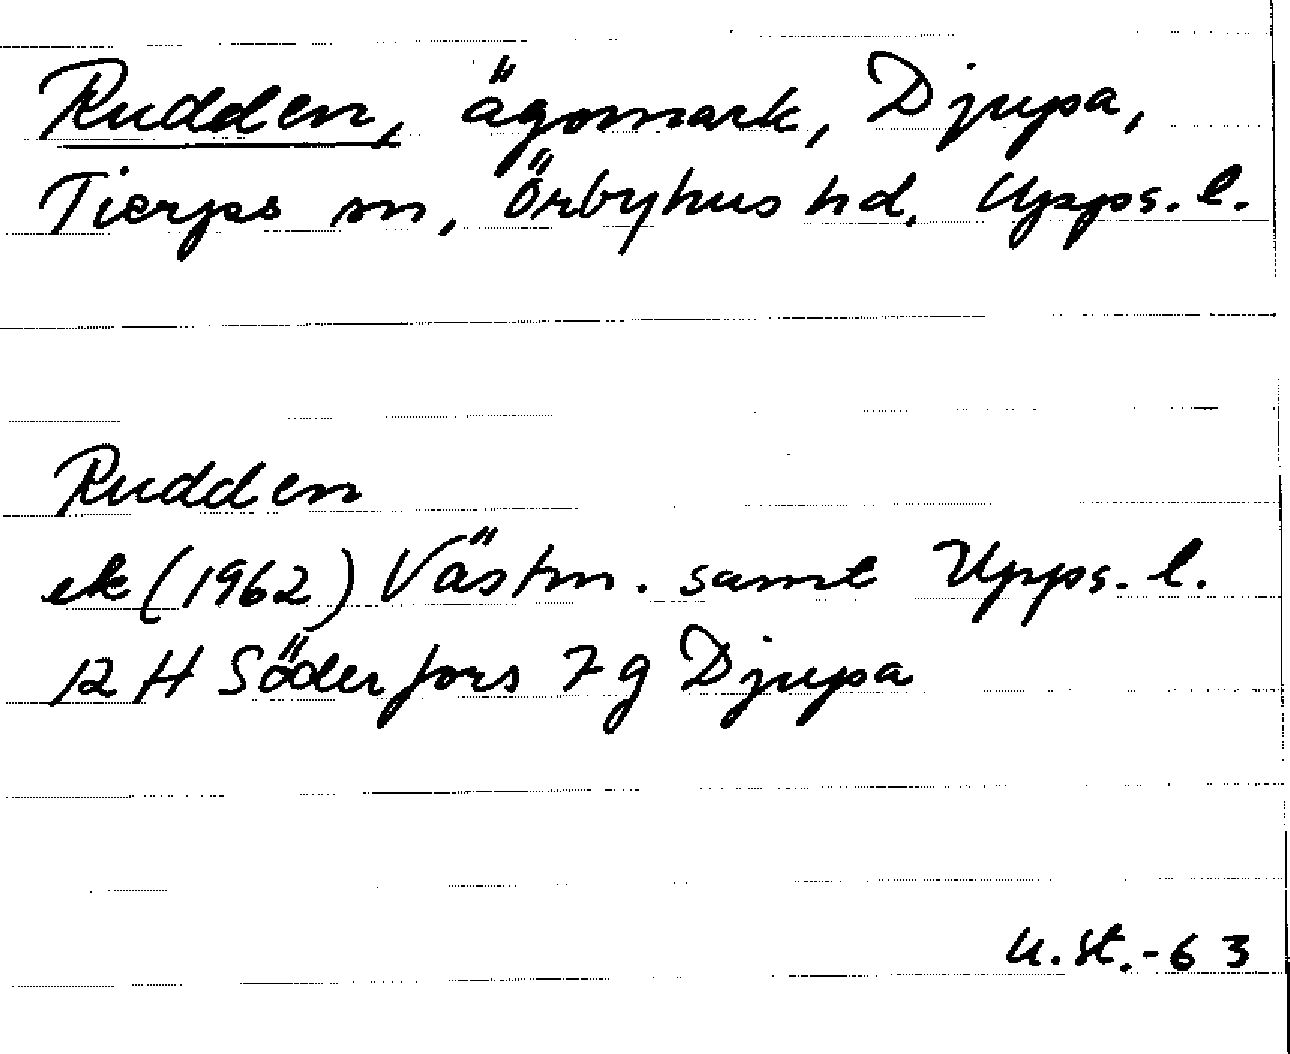 Rudden, ägomark, Djupa,
Tierps sn, Örbyhus hd, Upps. l.
Rudden
ek (1962) Västm. samt Upps. l.
12 H Söderfors 7 g Djupa
U. St. - 63